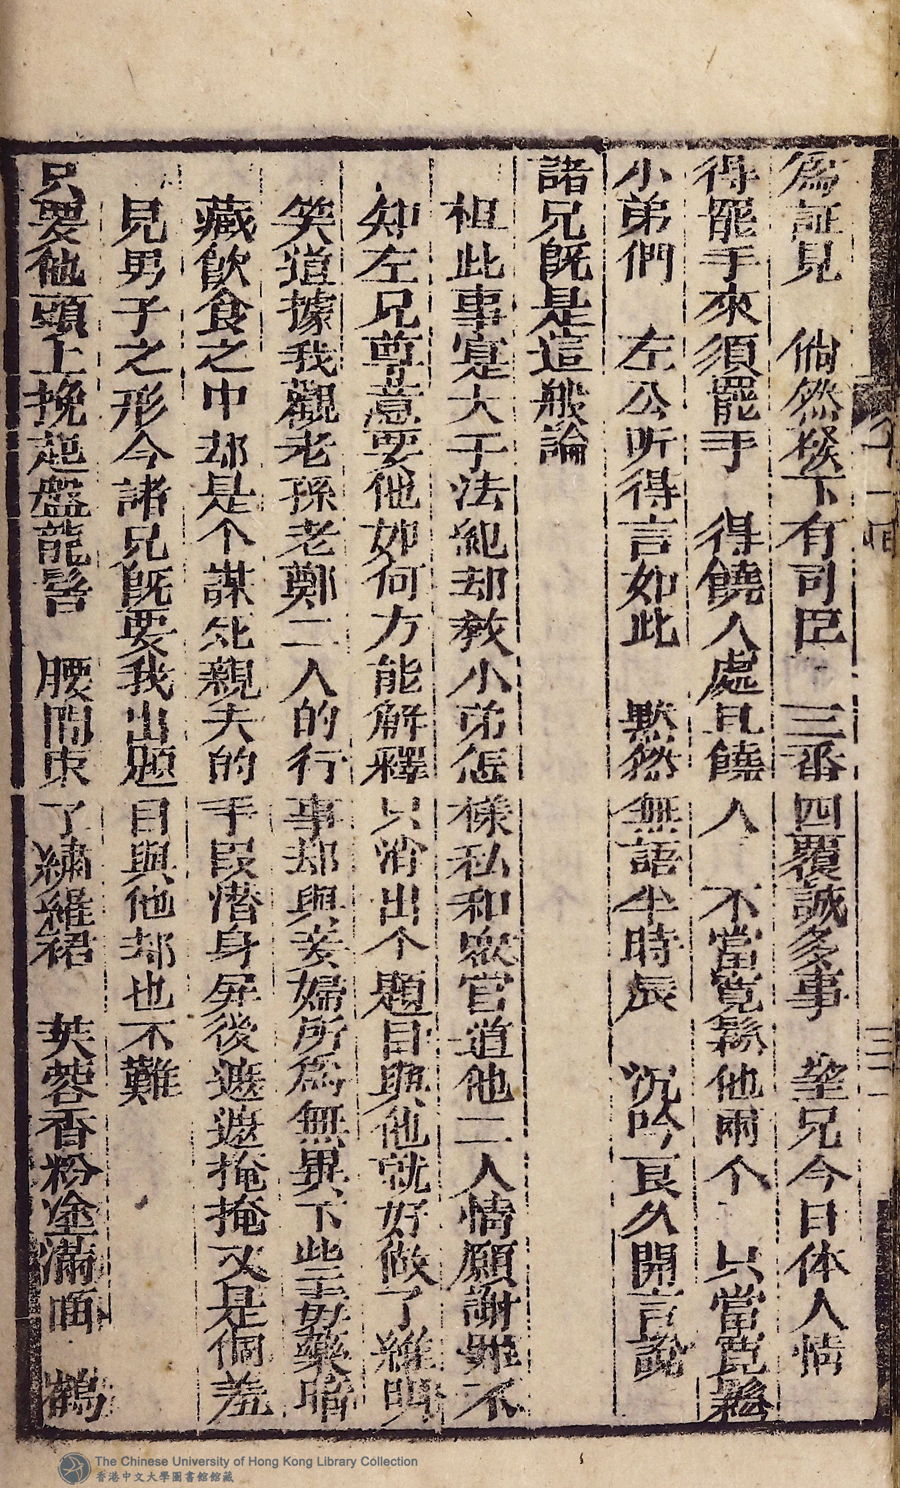 為証見　倘然發下有司臣　三番四覆誠多事　望兄今日体人情
得罷手來須罷手　得饒人處且饒人　不當寬鬆他兩个　只當寬鬆
小弟們　左公听得言如此　黙然無語半時辰　沉吟良久開言說
諸兄旣是這般論
柤此事寔大于法紀却教小弟怎樣私和眾官道他二人情願謝罪不
知左兄尊意要他如何方能解釋只消出个題目與他就好做了維明
笑道據我觀老孫老鄭二人的行事却與妾婦所為無異下些毒藥暗
藏飲食之中却是个謀死親夫的手叚潛身屏後遮遮掩掩又是個羞
見男子之形今諸兄旣要我出題目與他却也不難
只要他頭上挽起盤龍髻　腰間束了繡羅裙　芙蓉香粉塗滿面　鶴
The Chinese University of Hong Kong Library Collection
香港中文大學圖書館館藏